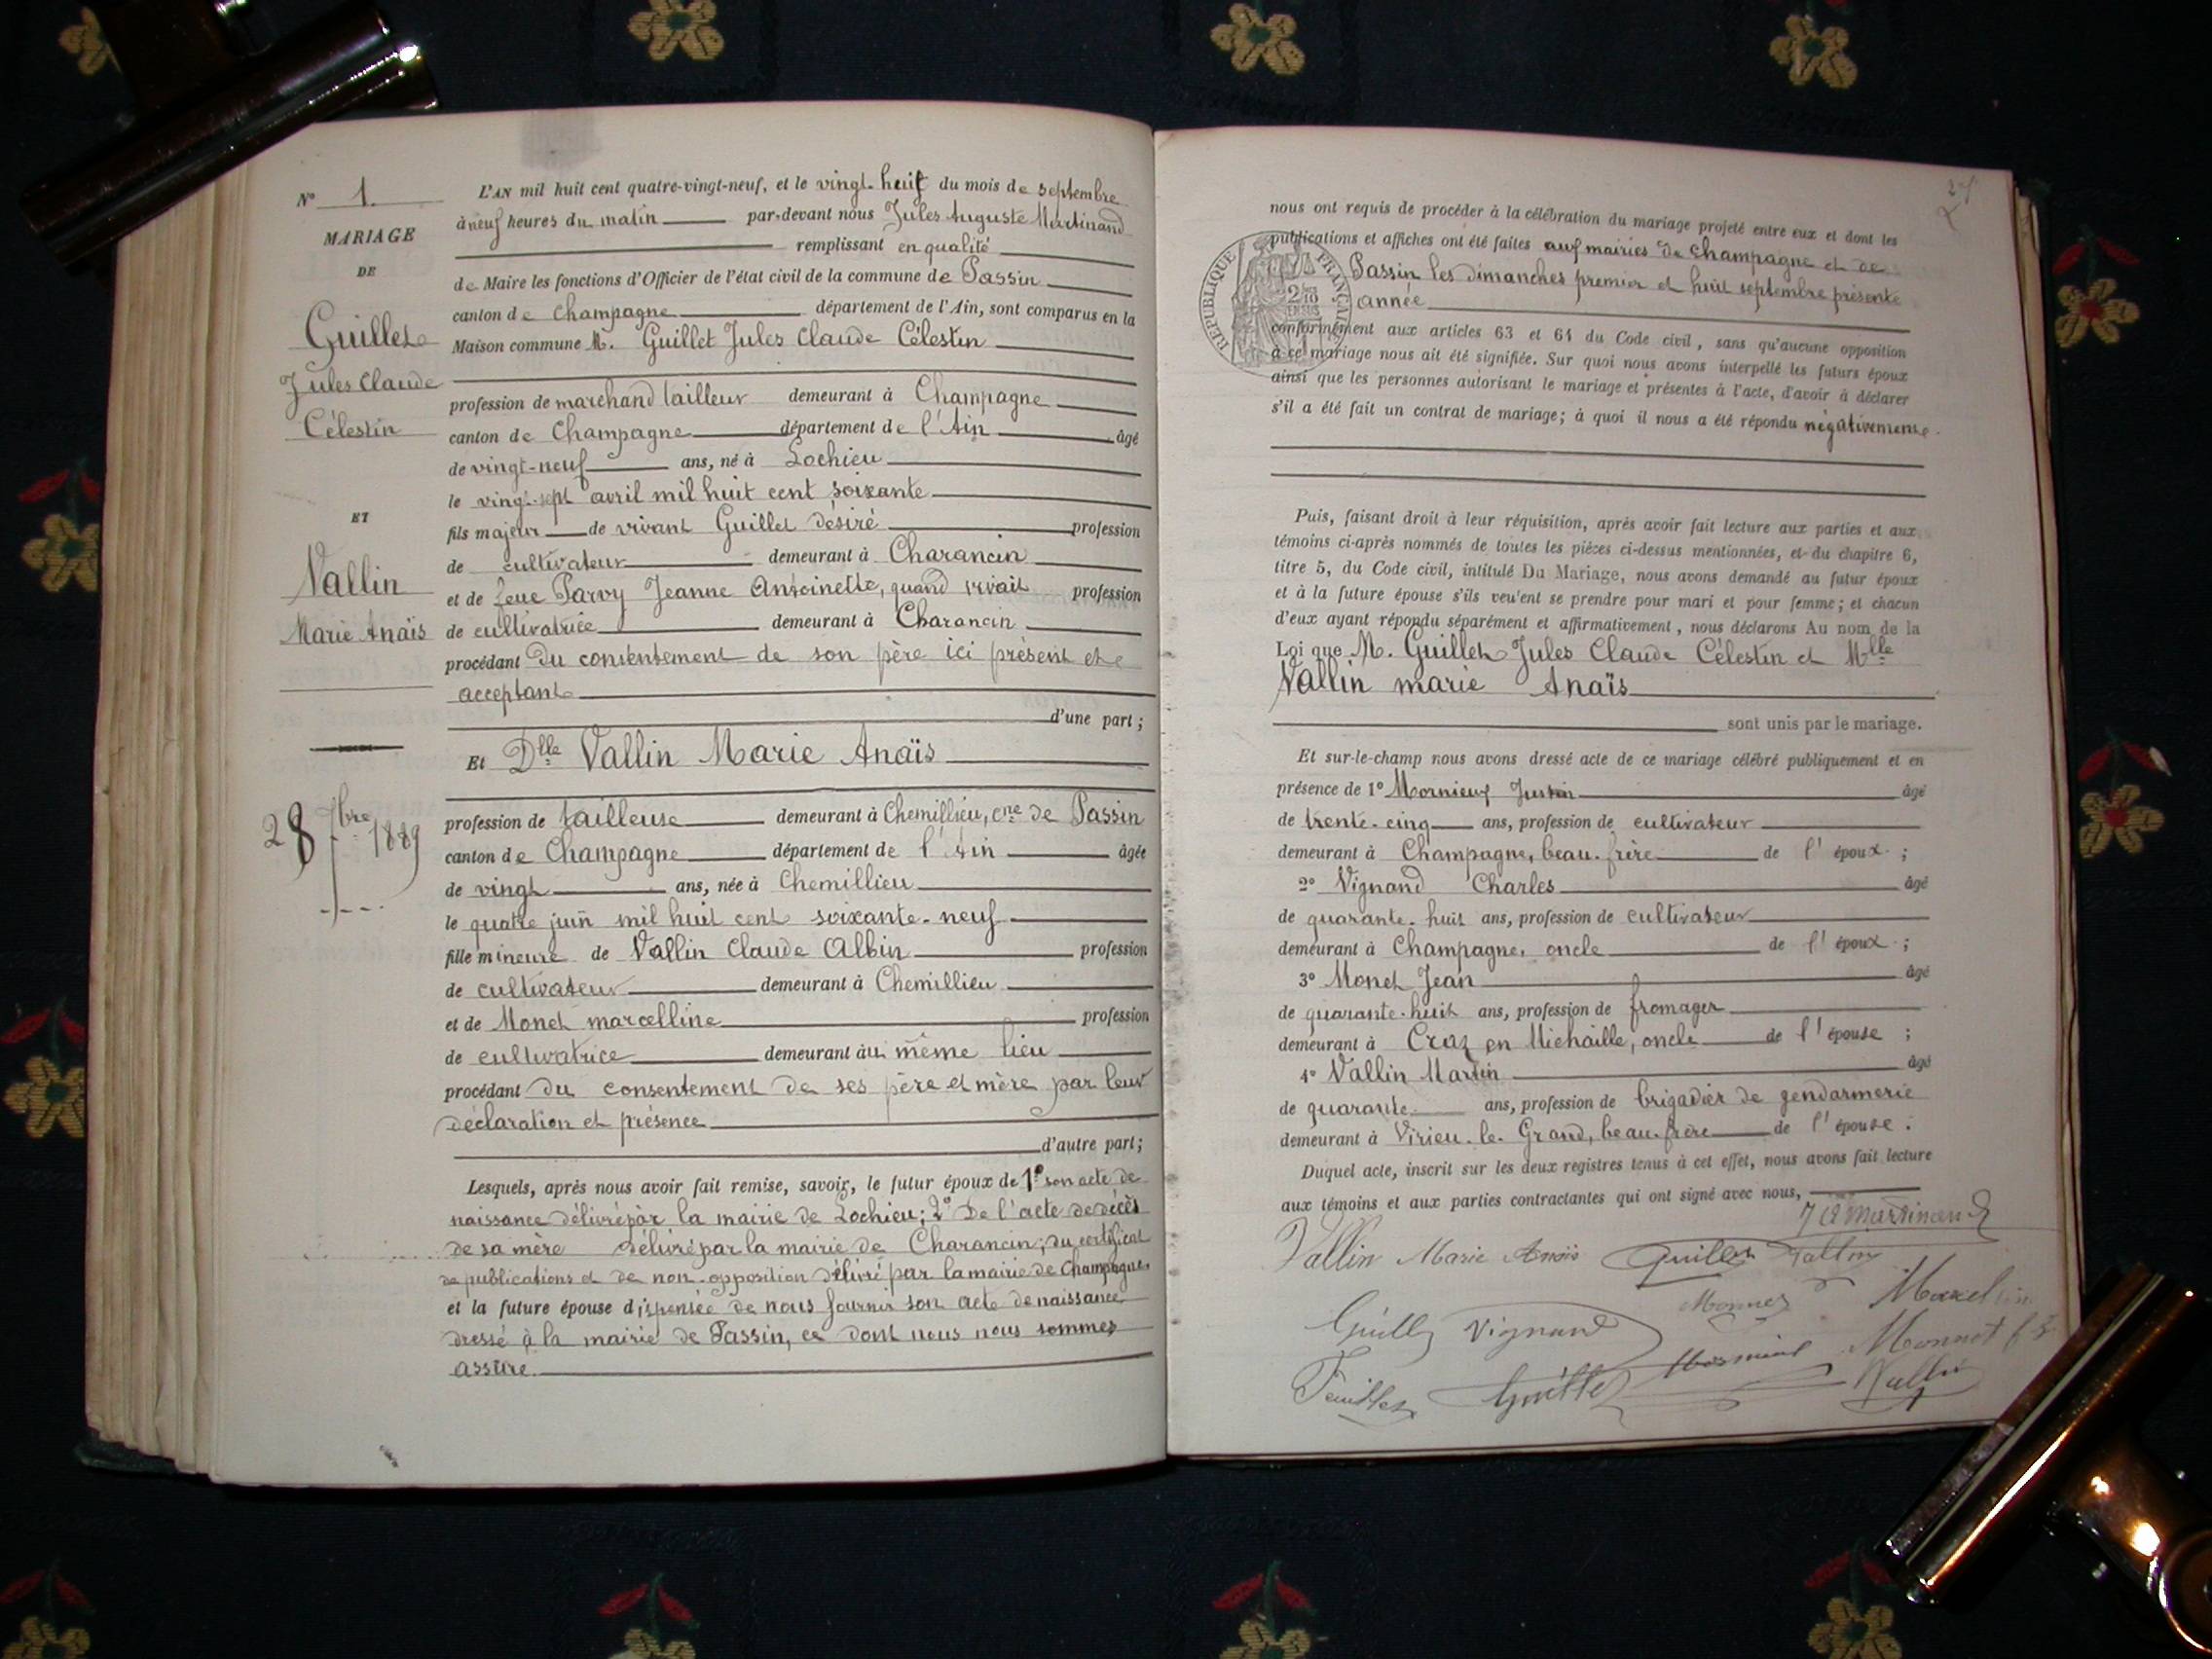 N° 1.
MARIAGE
DE
Guillet
Jules Claude
Célestin
ET
Vallin
Marie Anaïs
28 7bre 1889
L'AN mil huit cent quatre-vingt-neuf, et le vingt-huit du mois de septembre
à neuf heures du matin par-devant nous Jules Auguste Martinand
remplissant en qualité
de Maire les fonctions d'Officier de l'état civil de la commune de Passin
canton de Champagne département de l'Ain, sont comparus en la
Maison commune M. Guillet Jules Claude Célestin
profession de marchand tailleur demeurant à Champagne
canton de Champagne département de l'Ain âgé
de vingt-neuf ans, né à Lochieu
le vingt-sept avril mil huit cent soixante
fils majeur de vivant Guillet désiré profession
de cultivateur demeurant à Charancin
et de feue Parvy Jeanne Antoinette, quand vivait profession
de cultivatrice demeurant à Charancin
procédant du consentement de son père ici présent et
acceptant
d'une part ;
Et Dlle Vallin Marie Anaïs
profession de tailleuse demeurant à Chemillieu, cne de Passin
canton de Champagne département de l'Ain âgée
de vingt ans, née à Chemillieu
le quatre juin mil huit cent soixante-neuf
fille mineure de Vallin Claude Albin profession
de cultivateur demeurant à Chemillieu
et de Monet marcelline profession
de cultivatrice demeurant au même lieu
procédant du consentement de ses père et mère par leur
déclaration et présence
d'autre part ;
Lesquels, après nous avoir fait remise, savoir, le futur époux de 1° son acte de
naissance délivré par la mairie de Lochieu ; 2° De l'acte de décès
de sa mère délivré par la mairie de Charancin ; du certificat
de publications et de non-opposition délivré par la mairie de Champagne
et la future épouse dispensée de nous fournir son acte de naissance
dressé à la mairie de Passin, ce dont nous nous sommes
assuré.
27
nous ont requis de procéder à la célébration du mariage projeté entre eux et dont les
publications et affiches ont été faites aux mairies de Champagne et de
Passin les dimanches premier et huit septembre présente
année
RÉPUBLIQUE FRANÇAISE
conformément aux articles 63 et 64 du Code civil, sans qu'aucune opposition
à ce mariage nous ait été signifiée. Sur quoi nous avons interpellé les futurs époux
ainsi que les personnes autorisant le mariage et présentes à l'acte, d'avoir à déclarer
s'il a été fait un contrat de mariage ; à quoi il nous a été répondu négativement.
Puis, faisant droit à leur réquisition, après avoir fait lecture aux parties et aux
témoins ci-après nommés de toutes les pièces ci-dessus mentionnées, et du chapitre 6,
titre 5, du Code civil, intitulé Du Mariage, nous avons demandé au futur époux
et à la future épouse s'ils veulent se prendre pour mari et pour femme ; et chacun
d'eux ayant répondu séparément et affirmativement, nous déclarons Au nom de la
Loi que M. Guillet Jules Claude Célestin et Mlle
Vallin marie Anaïs
sont unis par le mariage.
Et sur-le-champ nous avons dressé acte de ce mariage célébré publiquement et en
présence de 1° Mornieux Justin âgé
de trente-cinq ans, profession de cultivateur
demeurant à Champagne, beau-frère de l'époux ;
2° Vignand Charles âgé
de quarante-huit ans, profession de cultivateur
demeurant à Champagne, oncle de l'époux ;
3° Monet Jean âgé
de quarante-huit ans, profession de fromager
demeurant à Craz en Michaille, oncle de l'épouse ;
4° Vallin Martin âgé
de quarante ans, profession de brigadier de gendarmerie
demeurant à Virieu-le-Grand, beau-frère de l'épouse.
Duquel acte, inscrit sur les deux registres tenus à cet effet, nous avons fait lecture
aux témoins et aux parties contractantes qui ont signé avec nous,
J A Martinand
Vallin Marie Anaïs Guillet Vallin
Monnet Marcelline
Vignand Monnet
Guillet Vallin